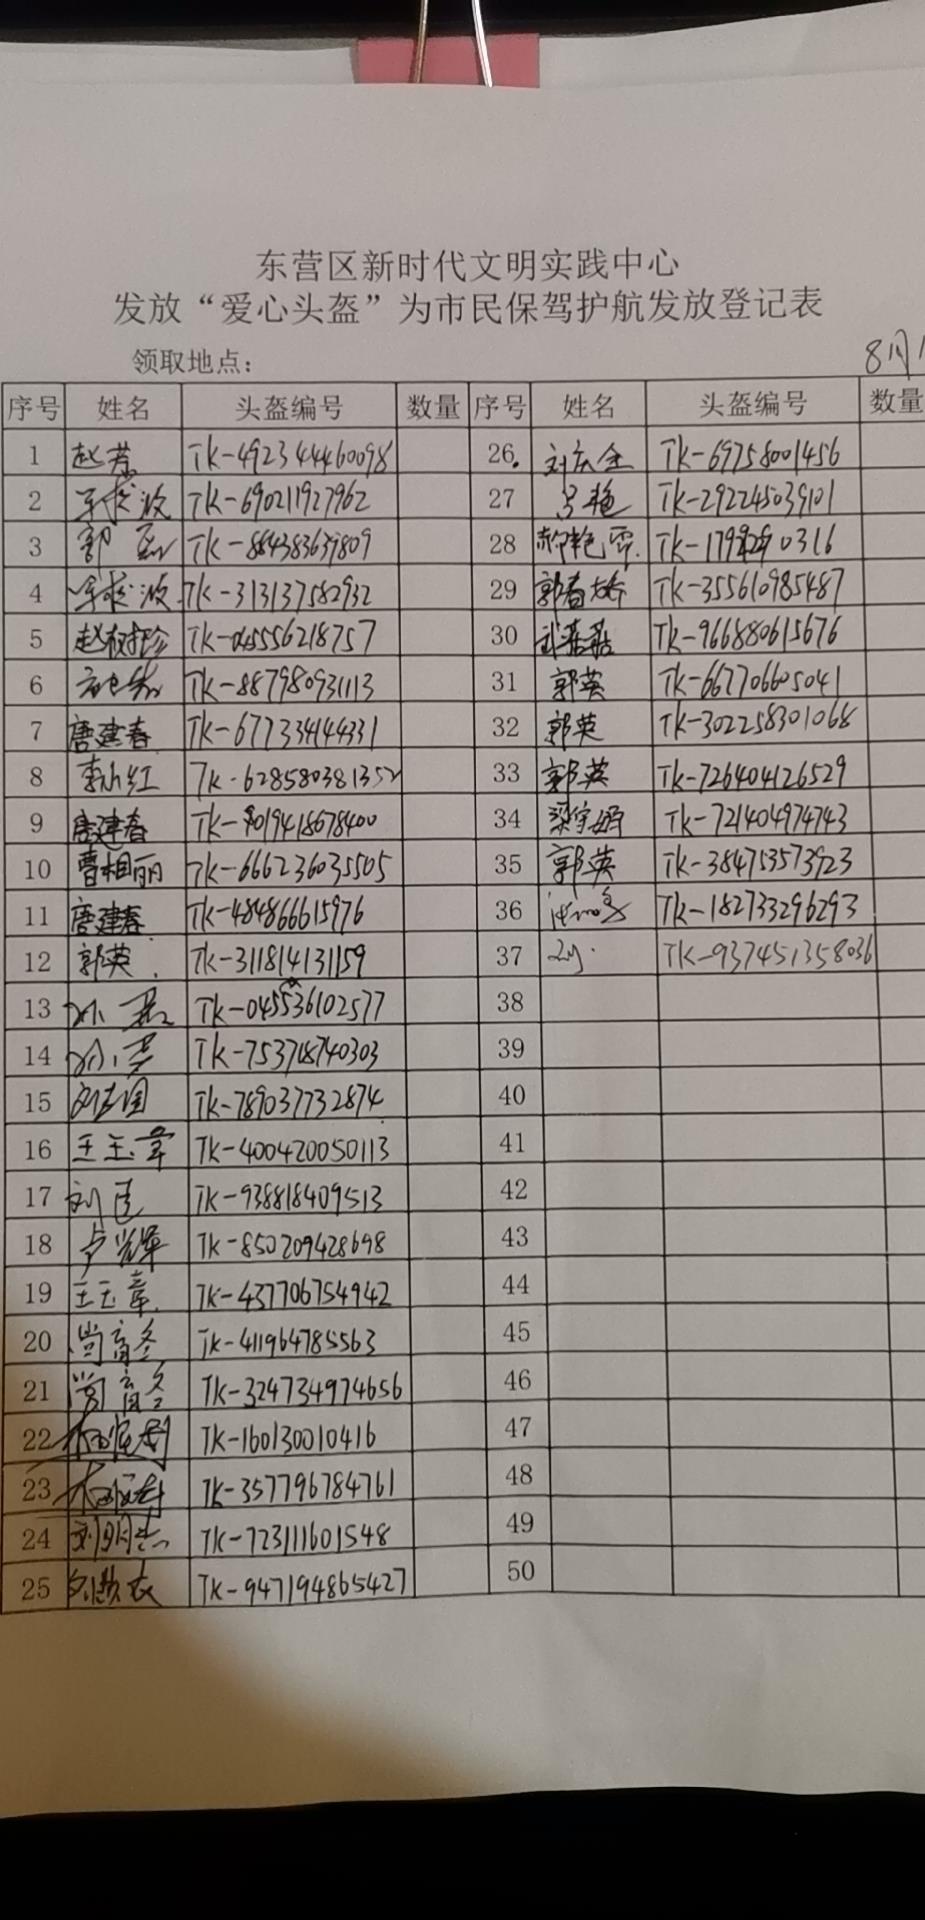 东营区新时代文明实践中心
发放“爱心头盔”为市民保驾护航发放登记表
领取地点：
8月1
序号 姓名 头盔编号 数量 序号 姓名 头盔编号 数量
1 赵芳 TK-4923444460098 26 刘庆全 TK-69758001456
2 TK-690211927962 27 TK-292245039101
3 郭 TK-884383639809 28 郝艳霞 TK-0316
4 TK-313137582932 29 郭春娇 TK-355610985487
5 赵淑珍 TK-045556218757 30 武磊磊 TK-966880615676
6 TK-887980931113 31 郭英 TK-667706605041
7 唐建春 TK-677334144331 32 郭英 TK-302258301068
8 李小红 TK-628580381352 33 郭英 TK-726404126529
9 唐建春 TK-9019418678400 34 梁宇婷 TK-721404974743
10 曹相丽 TK-666236035505 35 郭英 TK-384753573923
11 唐建春 TK-484866615976 36 TK-182733296293
12 郭英 TK-311814131159 37 TK-937451358036
13 TK-045536102577 38
14 TK-753718740303 39
15 刘志国 TK-789037732874 40
16 王玉章 TK-400420050113 41
17 刘 TK-938818409513 42
18 卢光军 TK-850209428698 43
19 王玉章 TK-437706754942 44
20 尚育冬 TK-411964785563 45
21 尚育冬 TK-324734974656 46
22 TK-160130010416 47
23 TK-357796784761 48
24 刘明杰 TK-723111601548 49
25 TK-947194865427 50